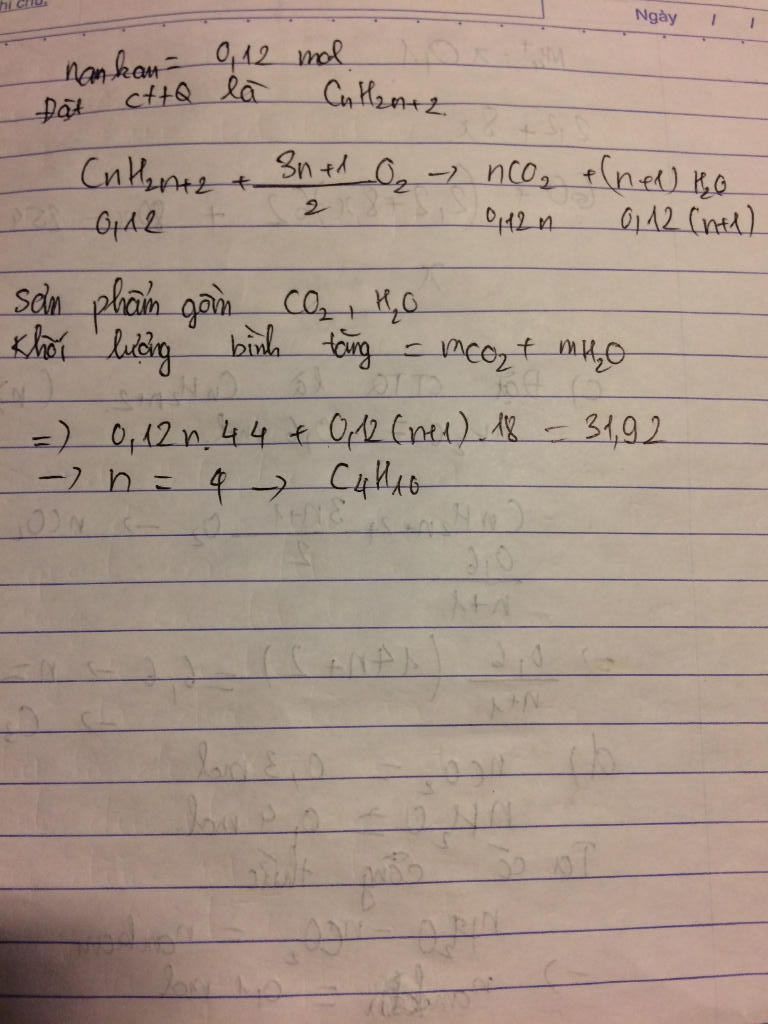 hi chú:
Ngày / /
nankan = 0,12 mol
Đặt CTTQ là CnH2n+2
CnH2n+2 + 3n+1/2 O2 → nCO2 + (n+1) H2O
0,12 0,12n 0,12(n+1)
Sản phẩm gồm CO2, H2O
Khối lượng bình tăng = mCO2 + mH2O
=) 0,12n.44 + 0,12(n+1).18 = 31,92
→ n = 4 → C4H10